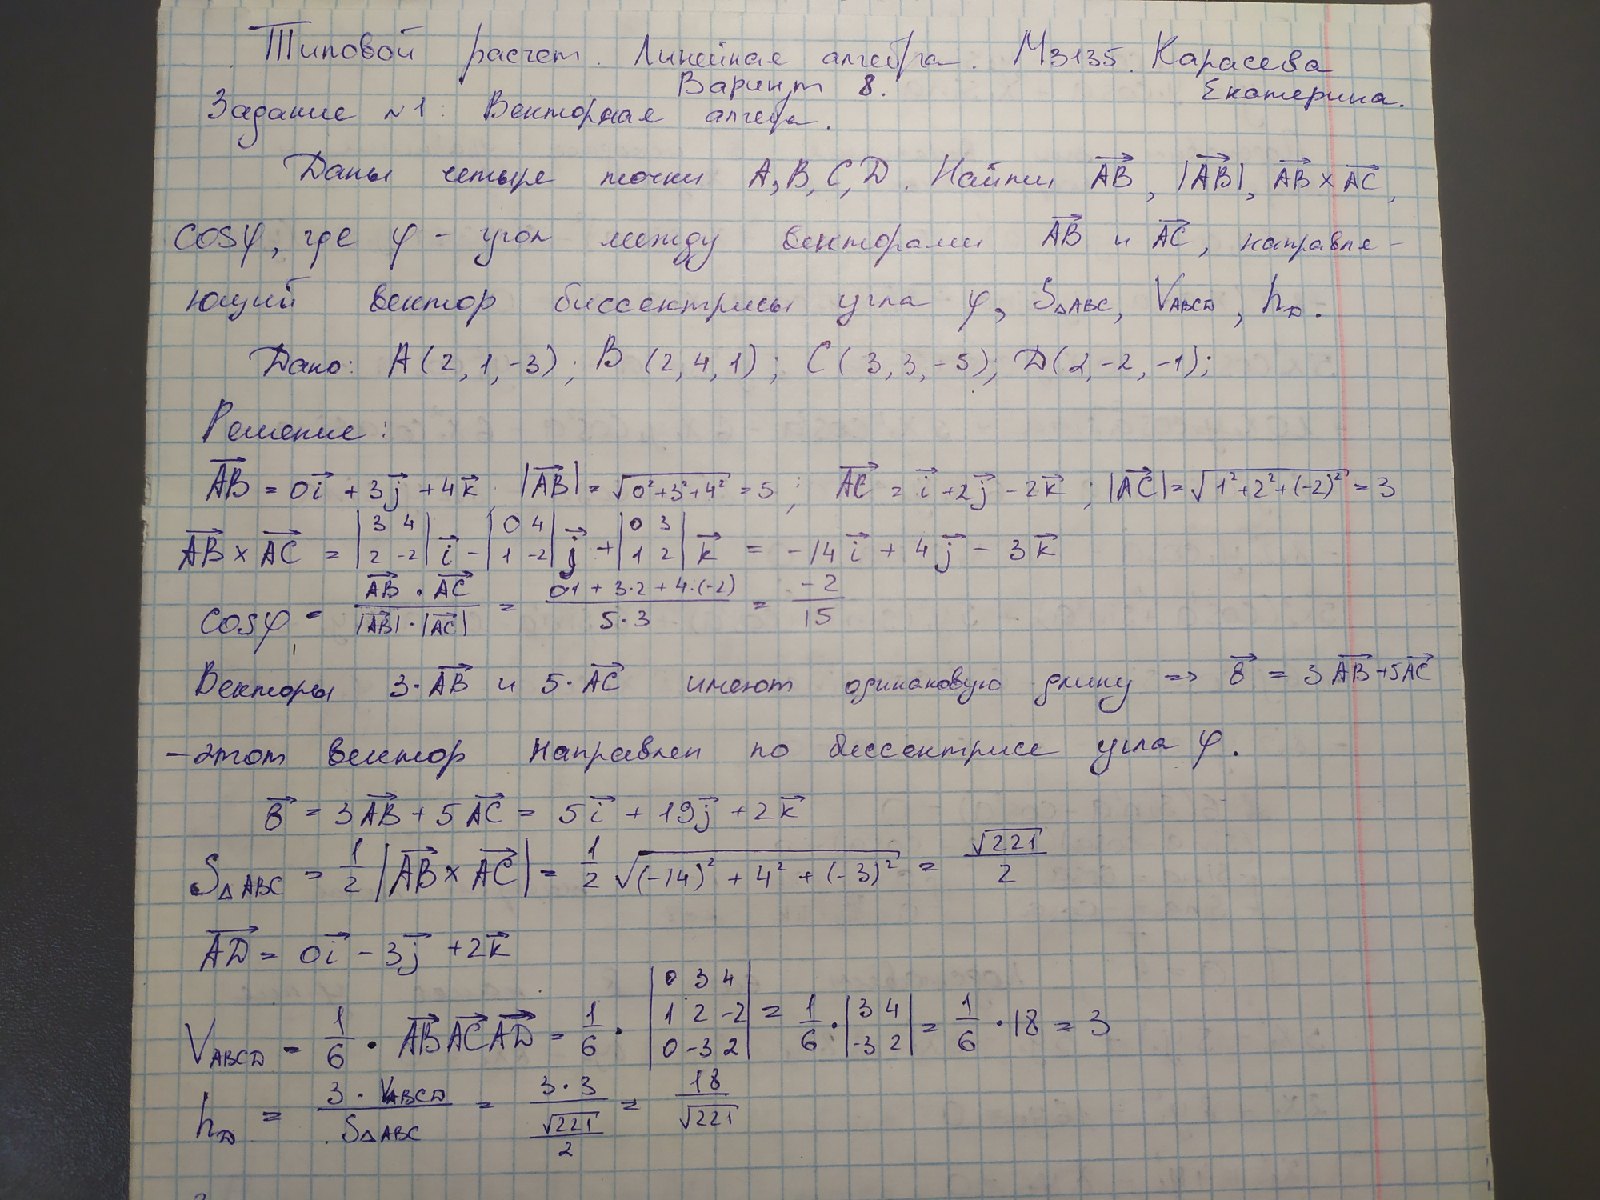 Типовой расчет. Линейная алгебра. М3135. Карасева
Вариант 8. Екатерина.
Задание №1: Векторная алгебра.
Даны четыре точки A, B, C, D. Найти AB⃗, |AB⃗|, AB⃗ × AC⃗,
cosφ, где φ - угол между векторами AB⃗ и AC⃗, направля-
ющий вектор биссектрисы угла φ, S△ABC, V_ABCD, h_D.
Дано: A(2,1,-3); B(2,4,1); C(3,3,-5); D(2,-2,-1);
Решение:
AB⃗ = 0i⃗ + 3j⃗ + 4k⃗ |AB⃗| = √(0²+3²+4²) = 5; AC⃗ = i⃗ + 2j⃗ - 2k⃗; |AC⃗| = √(1²+2²+(-2)²) = 3
AB⃗ × AC⃗ = |3 4; 2 -2| i⃗ - |0 4; 1 -2| j⃗ + |0 3; 1 2| k⃗ = -14i⃗ + 4j⃗ - 3k⃗
cosφ = (AB⃗ · AC⃗)/(|AB⃗|·|AC⃗|) = (0·1 + 3·2 + 4·(-2))/(5·3) = -2/15
Векторы 3·AB⃗ и 5·AC⃗ имеют одинаковую длину => в⃗ = 3AB⃗ + 5AC⃗
- этот вектор направлен по биссектрисе угла φ.
в⃗ = 3AB⃗ + 5AC⃗ = 5i⃗ + 19j⃗ + 2k⃗
S△ABC = 1/2 |AB⃗ × AC⃗| = 1/2 √((-14)² + 4² + (-3)²) = √221/2
AD⃗ = 0i⃗ - 3j⃗ + 2k⃗
V_ABCD = 1/6 · AB⃗ AC⃗ AD⃗ = 1/6 · |0 3 4; 1 2 -2; 0 -3 2| = 1/6 · |3 4; -3 2| = 1/6 · 18 = 3
h_D = (3·V_ABCD)/S△ABC = (3·3)/(√221/2) = 18/√221